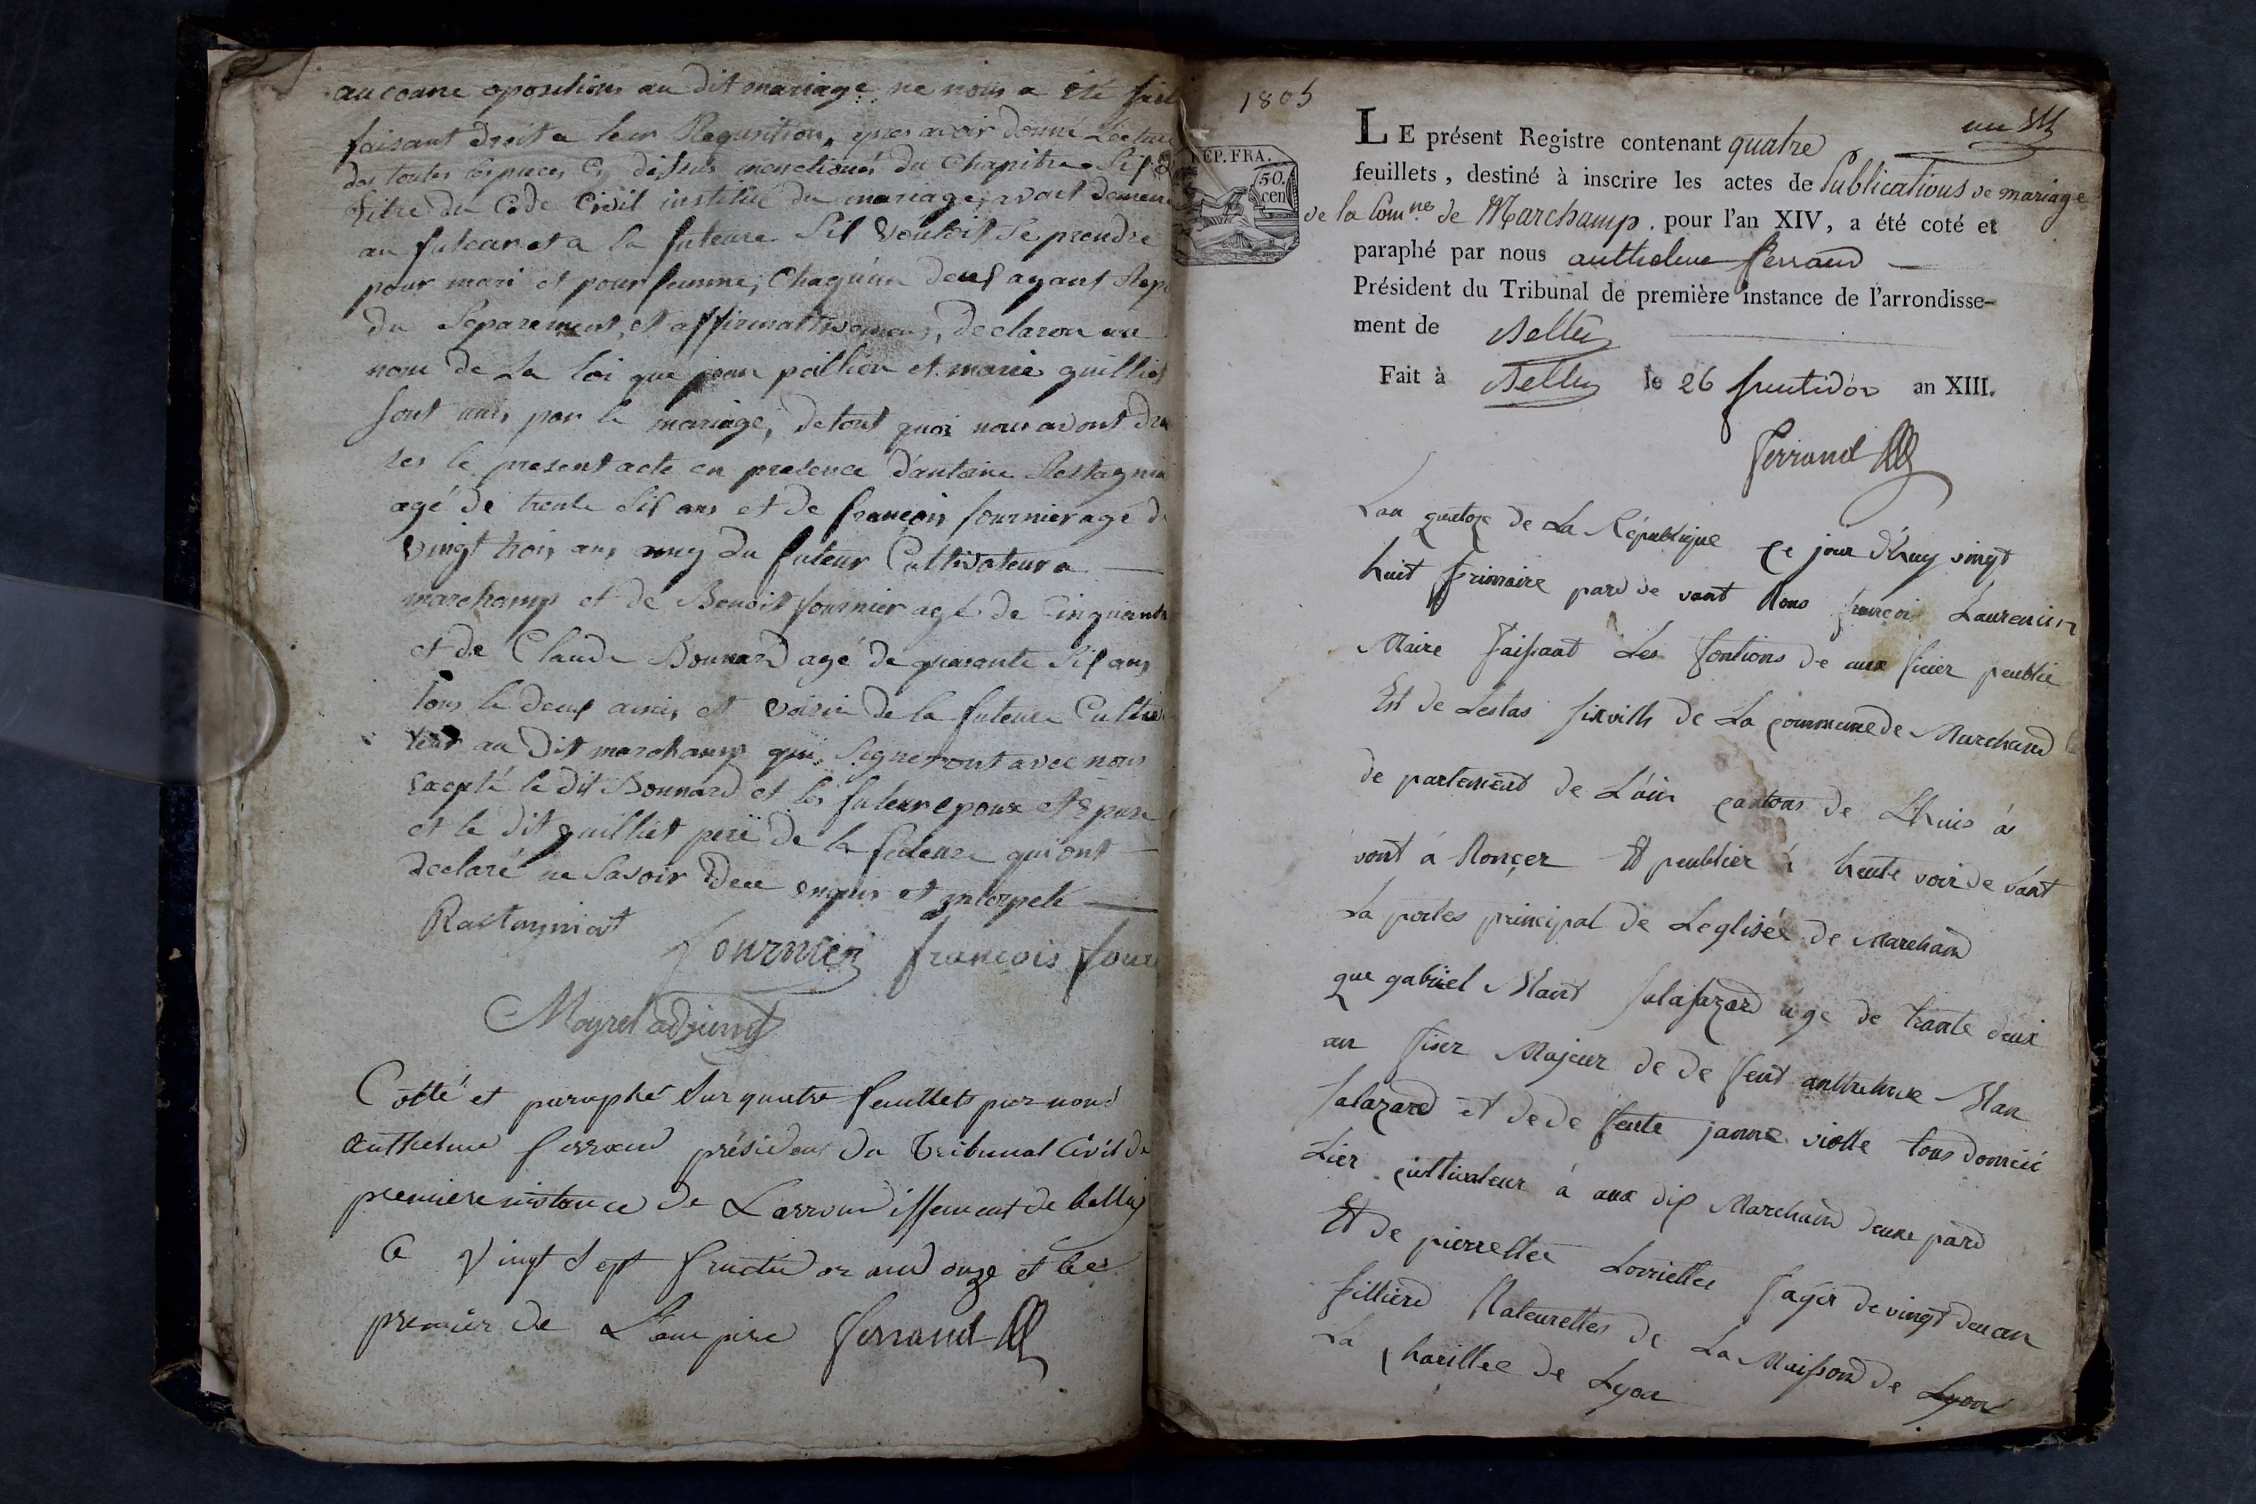 aucoune oposition au dit mariage ne nous a été fait
faisant droit a leur Requsition, apres avoir donné Lectur
des toutes les pieces Cy dessus menctionés du Chapitre Six
titre du Code Civil institué du mariage, avont deman
au futeur et a la futeure Sil Vouloit Se prendre
pour mari et pour femme, Chaqu'un deux ayant Repo
du Separement et affirmativement, declaron au
nom de La loi que jean paillion et marie guilliet
Sont unis par le mariage, de tout quoi nous avont dre
ses le present acte en presence d'antoine Rostagnia
agé de trente Six ans et de françois fournier agé de
Vingt trois ans amy du futeur Cultivateur a
marchamp et de Benoit fournier agé de Cinquante
et de Claude Bonnard agé de quarante Six ans
tous le deux amis et voisin de la futeure Cultiva
teur au Dit marchamp qui Signeront avec nous
Excepté le dit Bonnard et les futeur epoux et Epouse
et le dit guilliet pere de la futeure qui ont
declaré ne Savoir Dece enquis et interpelé
Rastagniat
fournier françois four
Mayret adjoint
Cotté et paraphé Sur quatre feuillets par nous
anthelme ferrand président du Tribunal Civil de
premiere instance de Larrondissement de belley
Ce Vingt Sept fructidor an onze et le
premier de L'empire ferrand
1805
un
LE présent Registre contenant quatre
RÉP. FRA.
50.
cen
feuillets, destiné à inscrire les actes de Publications de mariage
de la Comne de Marchamp, pour l'an XIV, a été coté et
paraphé par nous anthelme ferrand
Président du Tribunal de première instance de l'arrondisse-
ment de Belley
Fait à Belley le 26 fructidor an XIII.
ferrand
Lan quatoze de La République Ce jour d'huy vingt
huit frimaire pard de vant Nous françois Laurencin
Maire faisant Les fontions de aux ficier peublic
Est de Lestas sivills de La commune de Marchand
de partement de L'ain cantons de Lhuis á
vont á Nonçer Et peublier á heute voix de vant
La portes principal de Leglisée de Marchand
que gabriel Mant Salasazard áge de trante deux
an fiser Majeur de de feut anthelme Man
Salazard et de de feute janne violle tous domicié
Lier cultivateur á aux dix Marchand deune pard
Et de pierrettee Lorriettee ager de vingt deu an
fillierd Nateurelles de La Maisson de Lyon
La charittee de Lyon